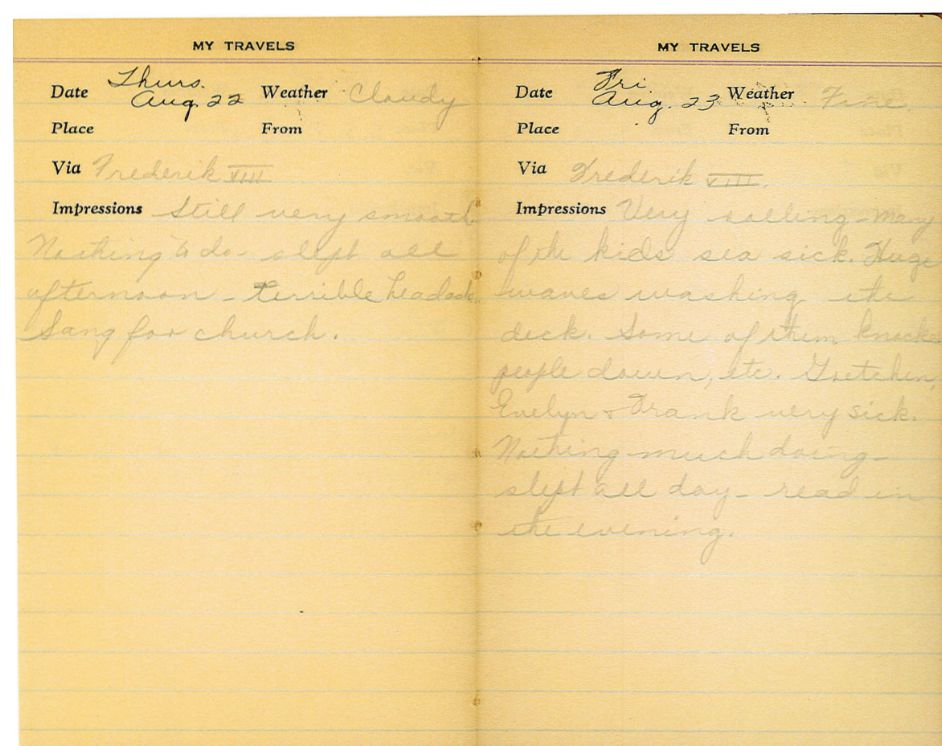 MY TRAVELS
Date Thurs. Aug. 22 Weather Cloudy
Place From
Via Frederik VIII
Impressions Still very smooth.
Nothing to do - slept all
afternoon - terrible headache
Sang for church.
MY TRAVELS
Date Fri Aug. 23 Weather Fine.
Place From
Via Frederik VIII.
Impressions Very rolling - many
of the kids sea sick. Huge
waves washing the
deck. Some of them knock
people down, etc. Gretchen,
Evelyn + Frank very sick.
Nothing much doing -
slept all day - read in
the evening.